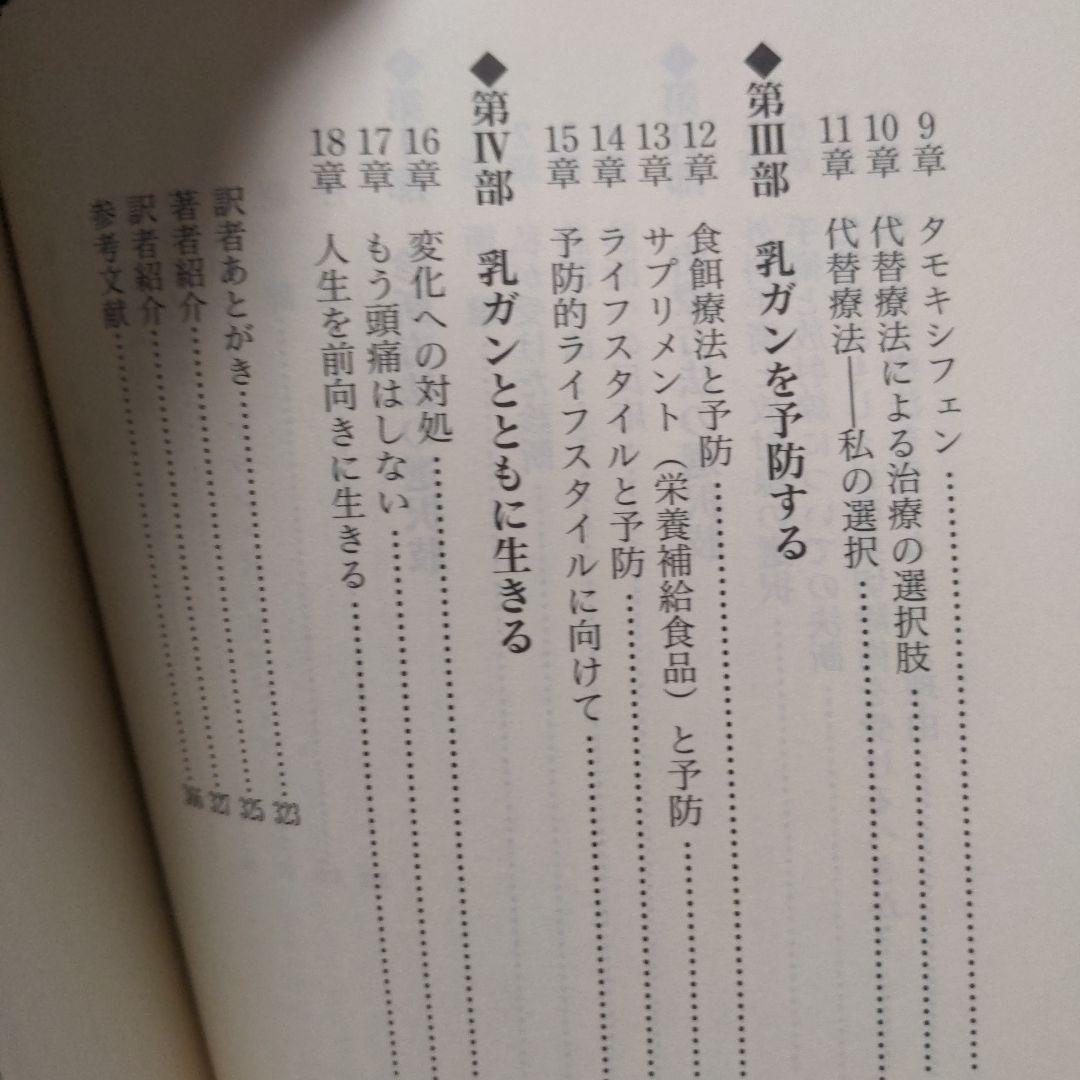 9章 タモキシフェン
10章 代替療法による治療の選択肢
11章 代替療法——私の選択
◆第Ⅲ部 乳ガンを予防する
12章 食餌療法と予防
13章 サプリメント（栄養補給食品）と予防
14章 ライフスタイルと予防
15章 予防的ライフスタイルに向けて
◆第Ⅳ部 乳ガンとともに生きる
16章 変化への対処
17章 もう頭痛はしない
18章 人生を前向きに生きる
訳者あとがき 323
著者紹介 325
訳者紹介 327
参考文献